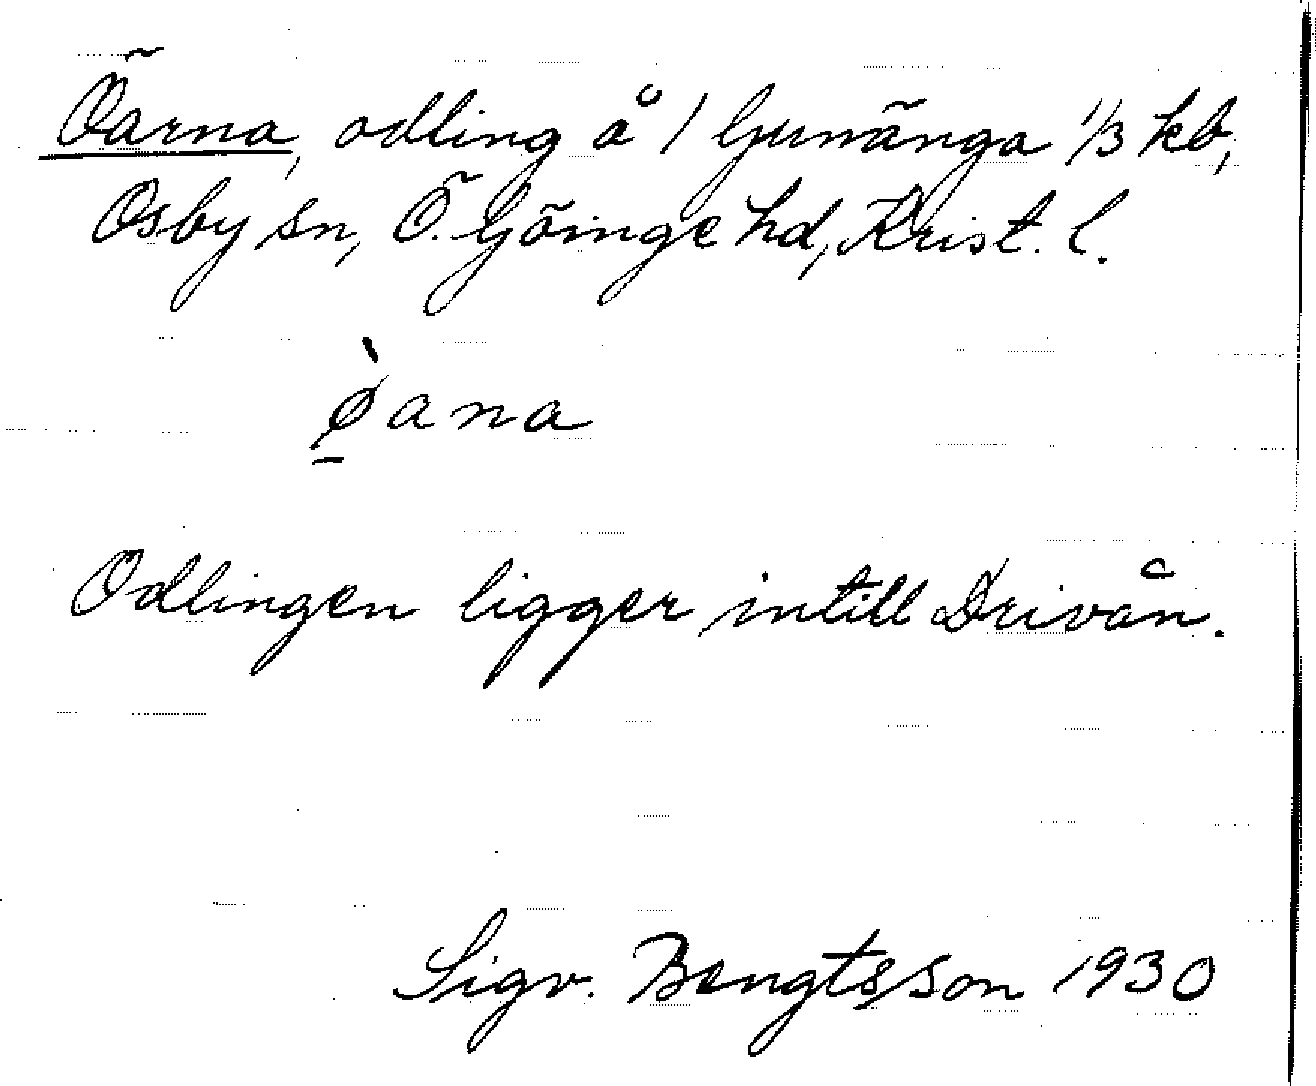 Öarna, odling å 1 Gunnänga 1/3 kb,
Osby sn, Ö. Göinge hd, Krist. l.
ø̱̀ana
Odlingen ligger intill Drivån.
Sigv. Bengtsson 1930